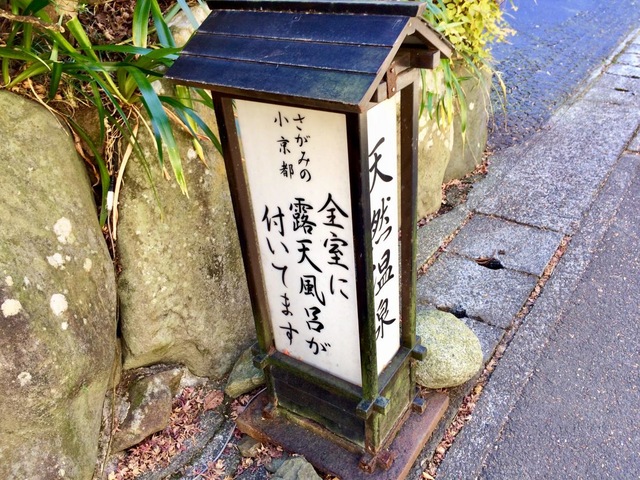 さがみの
小京都
全室に
露天風呂が
付いてます
天然温泉